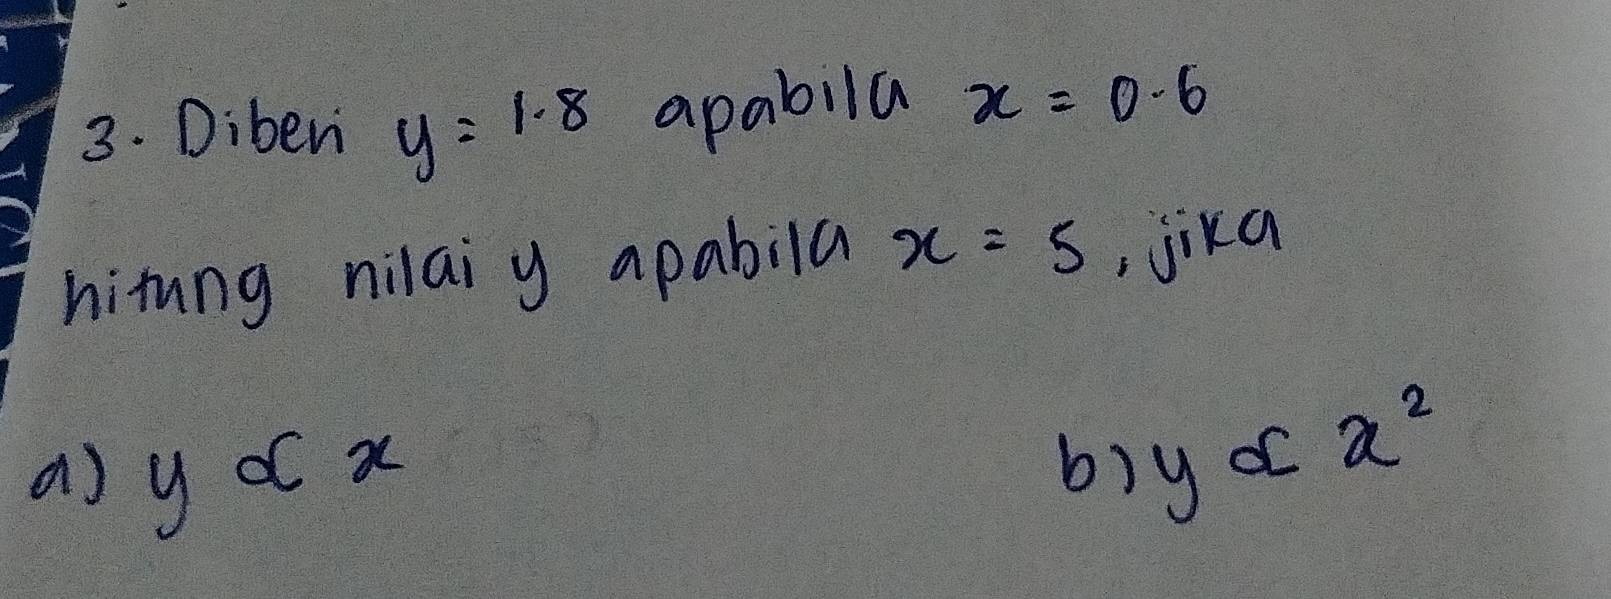 3. Diberi y = 1.8 apabila x = 0.6
hitung nilai y apabila x = 5, jika
a) y ∝ x b) y ∝ x²